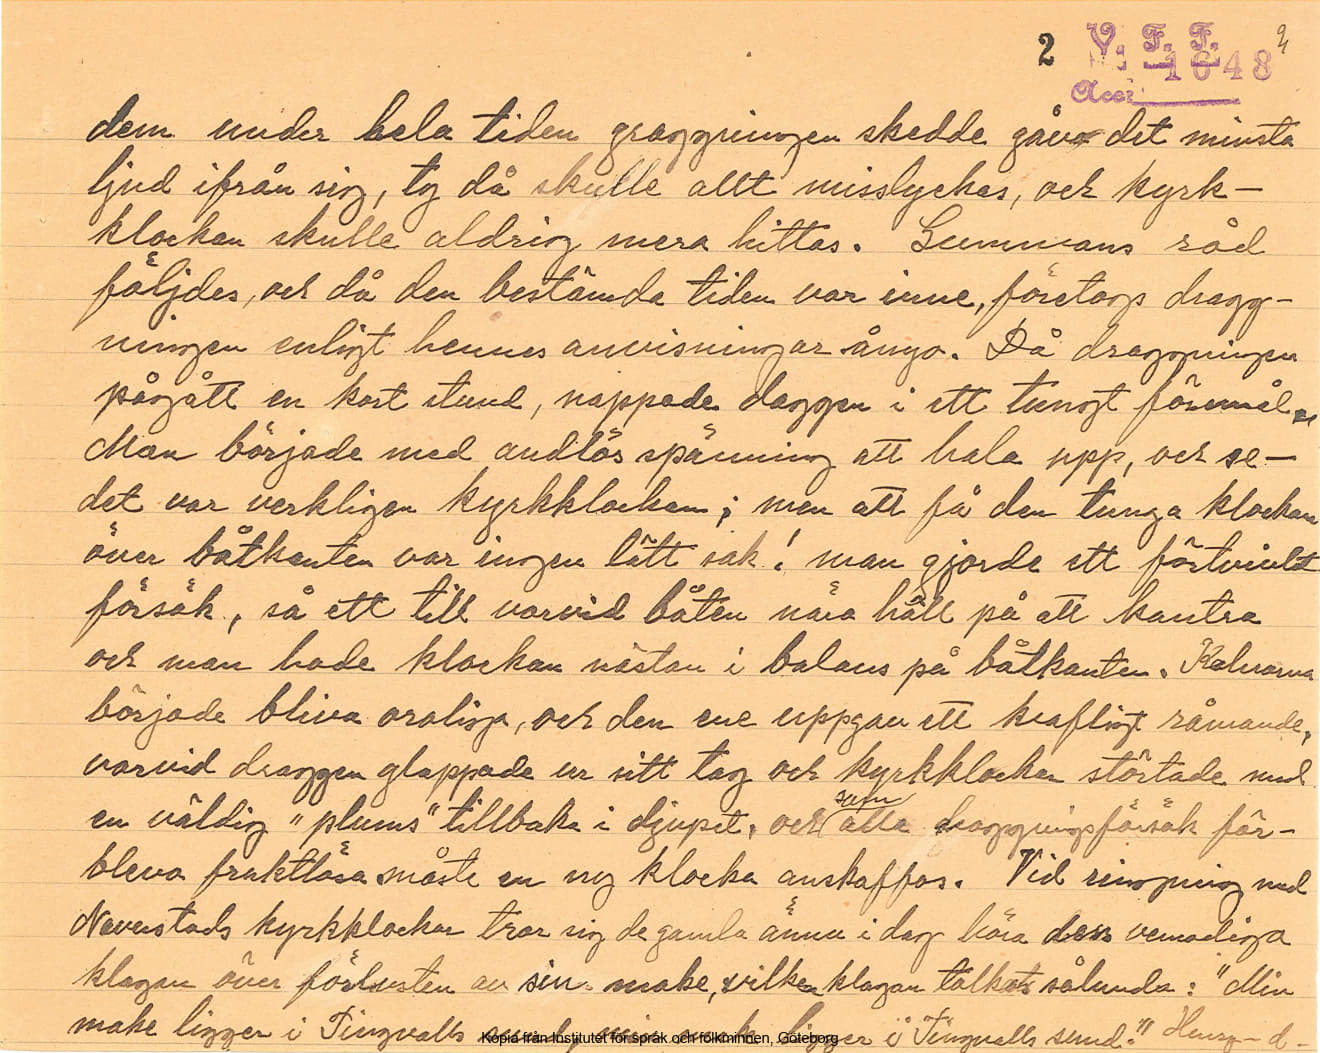 2 V. F. F. 2
1648
Acc:
dem under hela tiden draggningen skedde gåve det minsta
ljud ifrån sig, ty då skulle allt misslyckas, och kyrk-
klockan skulle aldrig mera hittas. Gummans råd
följdes, och då den bestämda tiden var inne, företogs dragg-
ningen enligt hennes anvisningar ånyo. Då draggningen
pågått en kort stund, nappade daggen i ett tungt föremål.
Man började med andlös spänning att hala upp, och se-
det var verkligen kyrkklockan; men att få den tunga klockan
över båtkanten var ingen lätt sak! man gjorde ett förtvivlat
försök, så ett till varvid båten nära höll på att kantra
och man hade klockan nästan i balans på båtkanten. Kalvarna
började bliva oroliga, och den ene uppgav ett kraftigt råmande,
varvid draggen glappade ur sitt tag och kyrkklockan störtade med
en väldig "plums" tillbaka i djupet, och som alla draggningsförsök för-
bleva fruktlösa måste en ny klocka anskaffas. Vid ringning med
Naverstads kyrkklockor tror sig de gamla ännu i dag höra dess vemodiga
klagan över förlusten av sin make, vilken klagan tolkats sålunda: "Min
make ligger i Tingvalls sund, min make ligger i Tingvalls sund."
Kopia från Institutet för språk och folkminnen, Göteborg